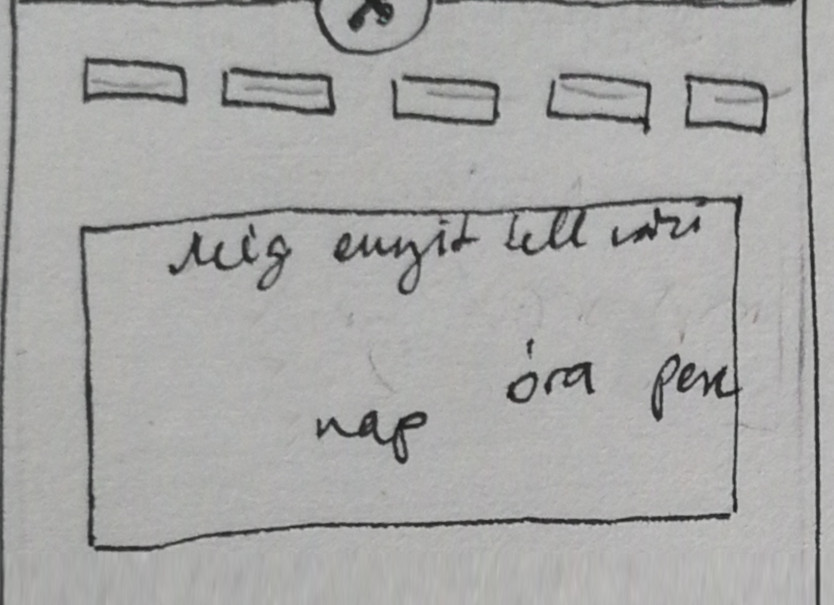 Még ennyit kell várni
nap óra perc